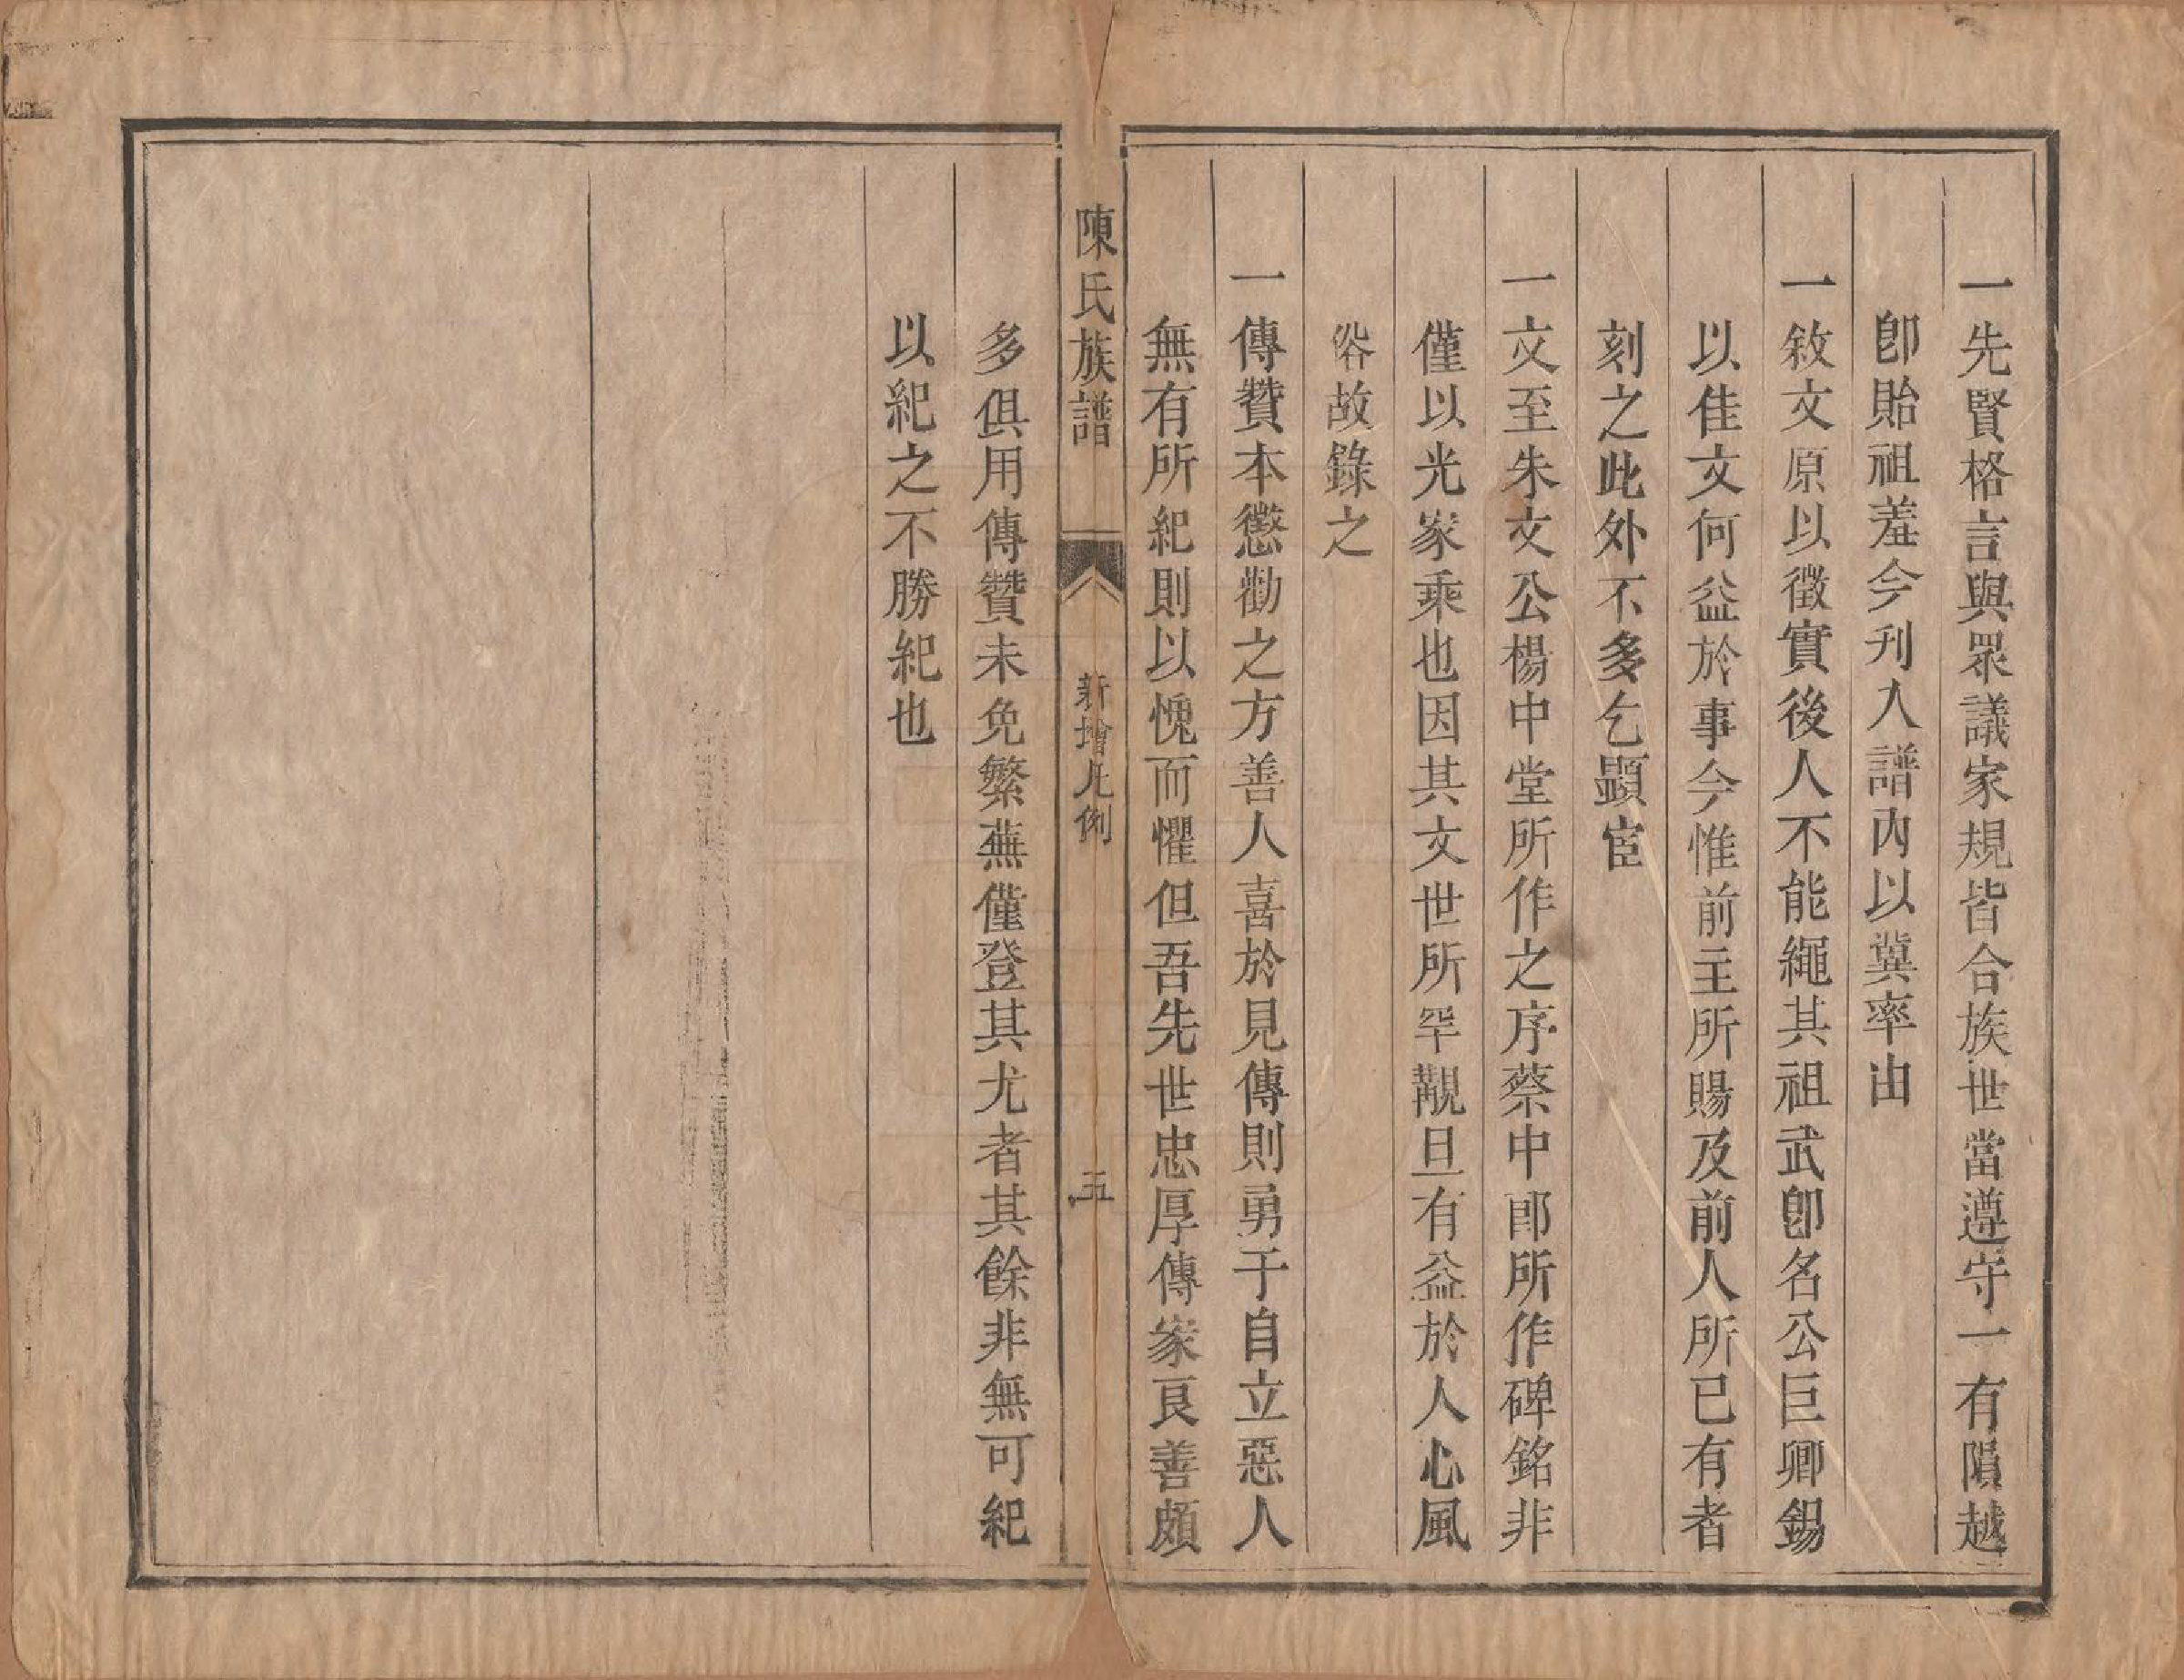 一先賢格言與眾議家規皆合族世當遵守一有隕越
卽貽祖羞今刋入譜內以冀率由
一敘文原以徵實後人不能繩其祖武卽名公巨卿錫
以佳文何益於事今惟前主所賜及前人所已有者
刻之此外不多乞顯宦
一文至朱文公楊中堂所作之序蔡中郎所作碑銘非
僅以光家乘也因其文世所罕覯且有益於人心風
俗故錄之
一傳贊本懲勸之方善人喜於見傳則勇于自立惡人
無有所紀則以愧而懼但吾先世忠厚傳家良善頗
陳氏族譜
新增凡例
五
多俱用傳贊未免繁蕪僅登其尤者其餘非無可紀
以紀之不勝紀也